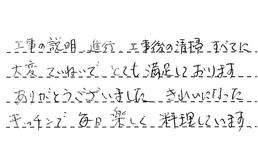 工事の説明 進行 工事後の清掃 すべてに
大変ていねいで とても満足しております
ありがとうございました きれいになった
キッチンで 毎日 楽しく 料理しています